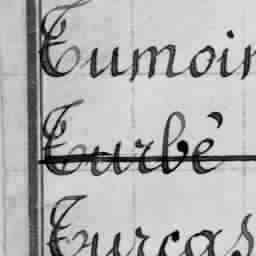 Tumoin
Turbé
Turcas